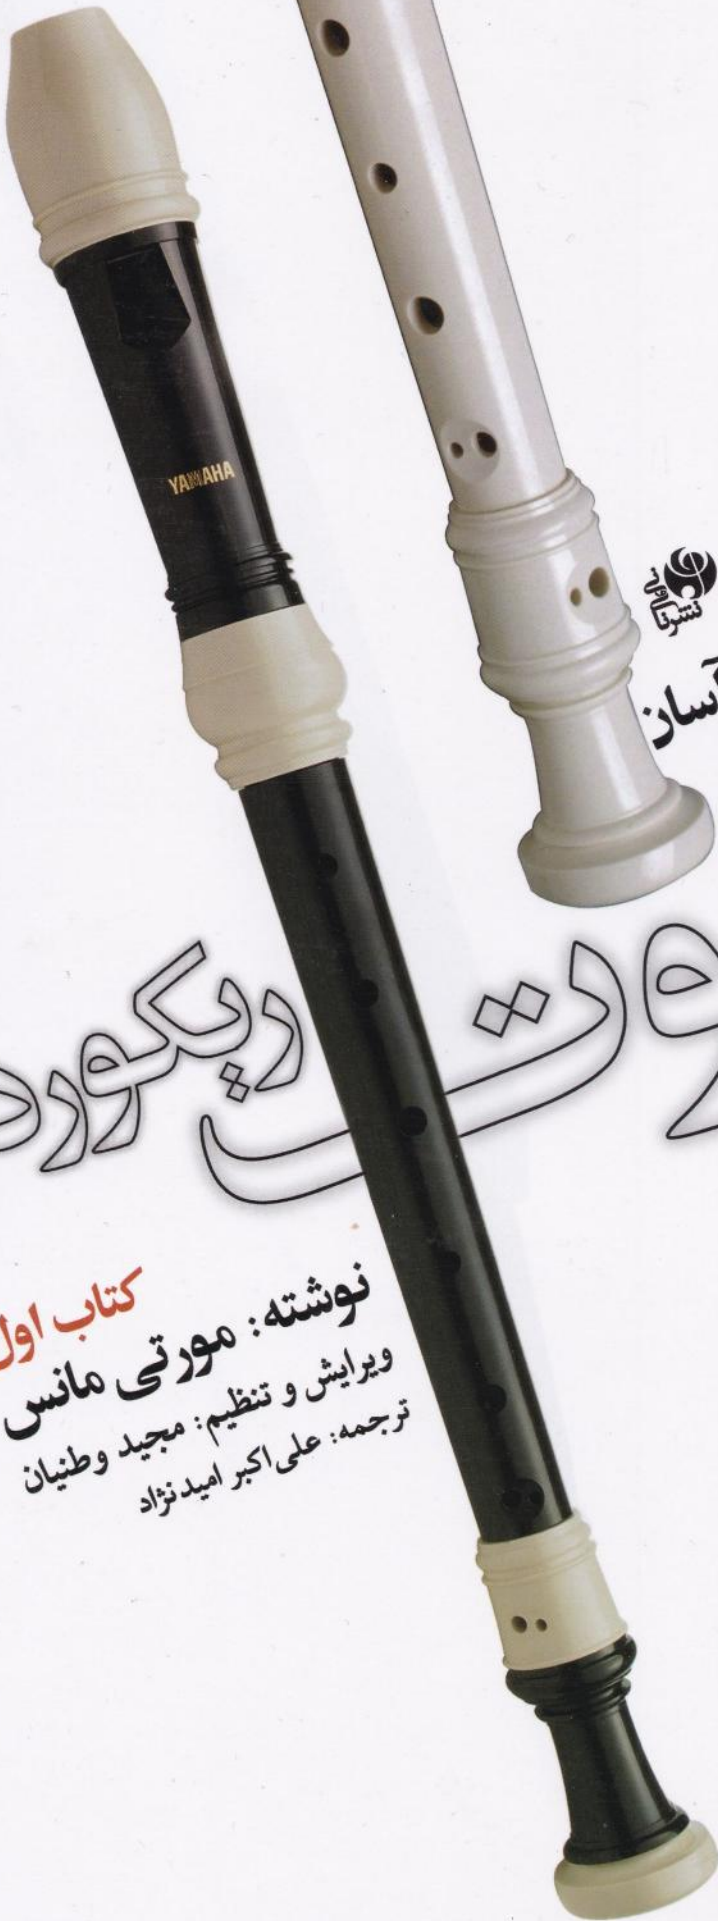 YAMAHA
آسان
ریکورد
کتاب اول
نوشته: مورتی مانس
ویرایش و تنظیم: مجید وطنیان
ترجمه: علی‌اکبر امیدنژاد